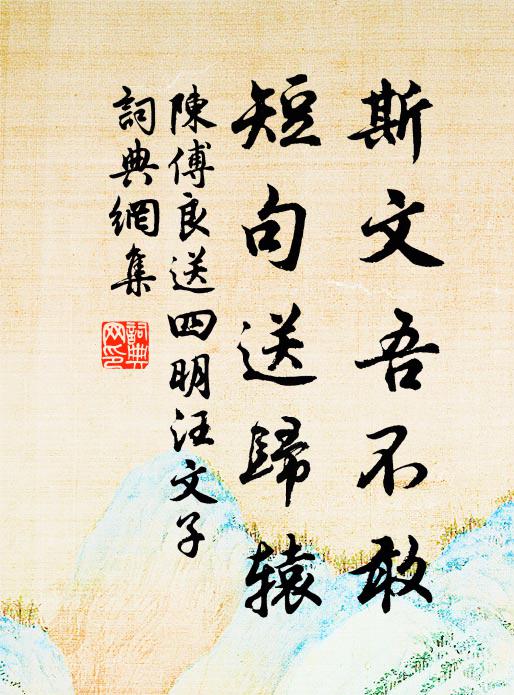 斯文吾不敢
短句送歸辕
陳傅良送四明汪文子
詞典網集
詞典网印